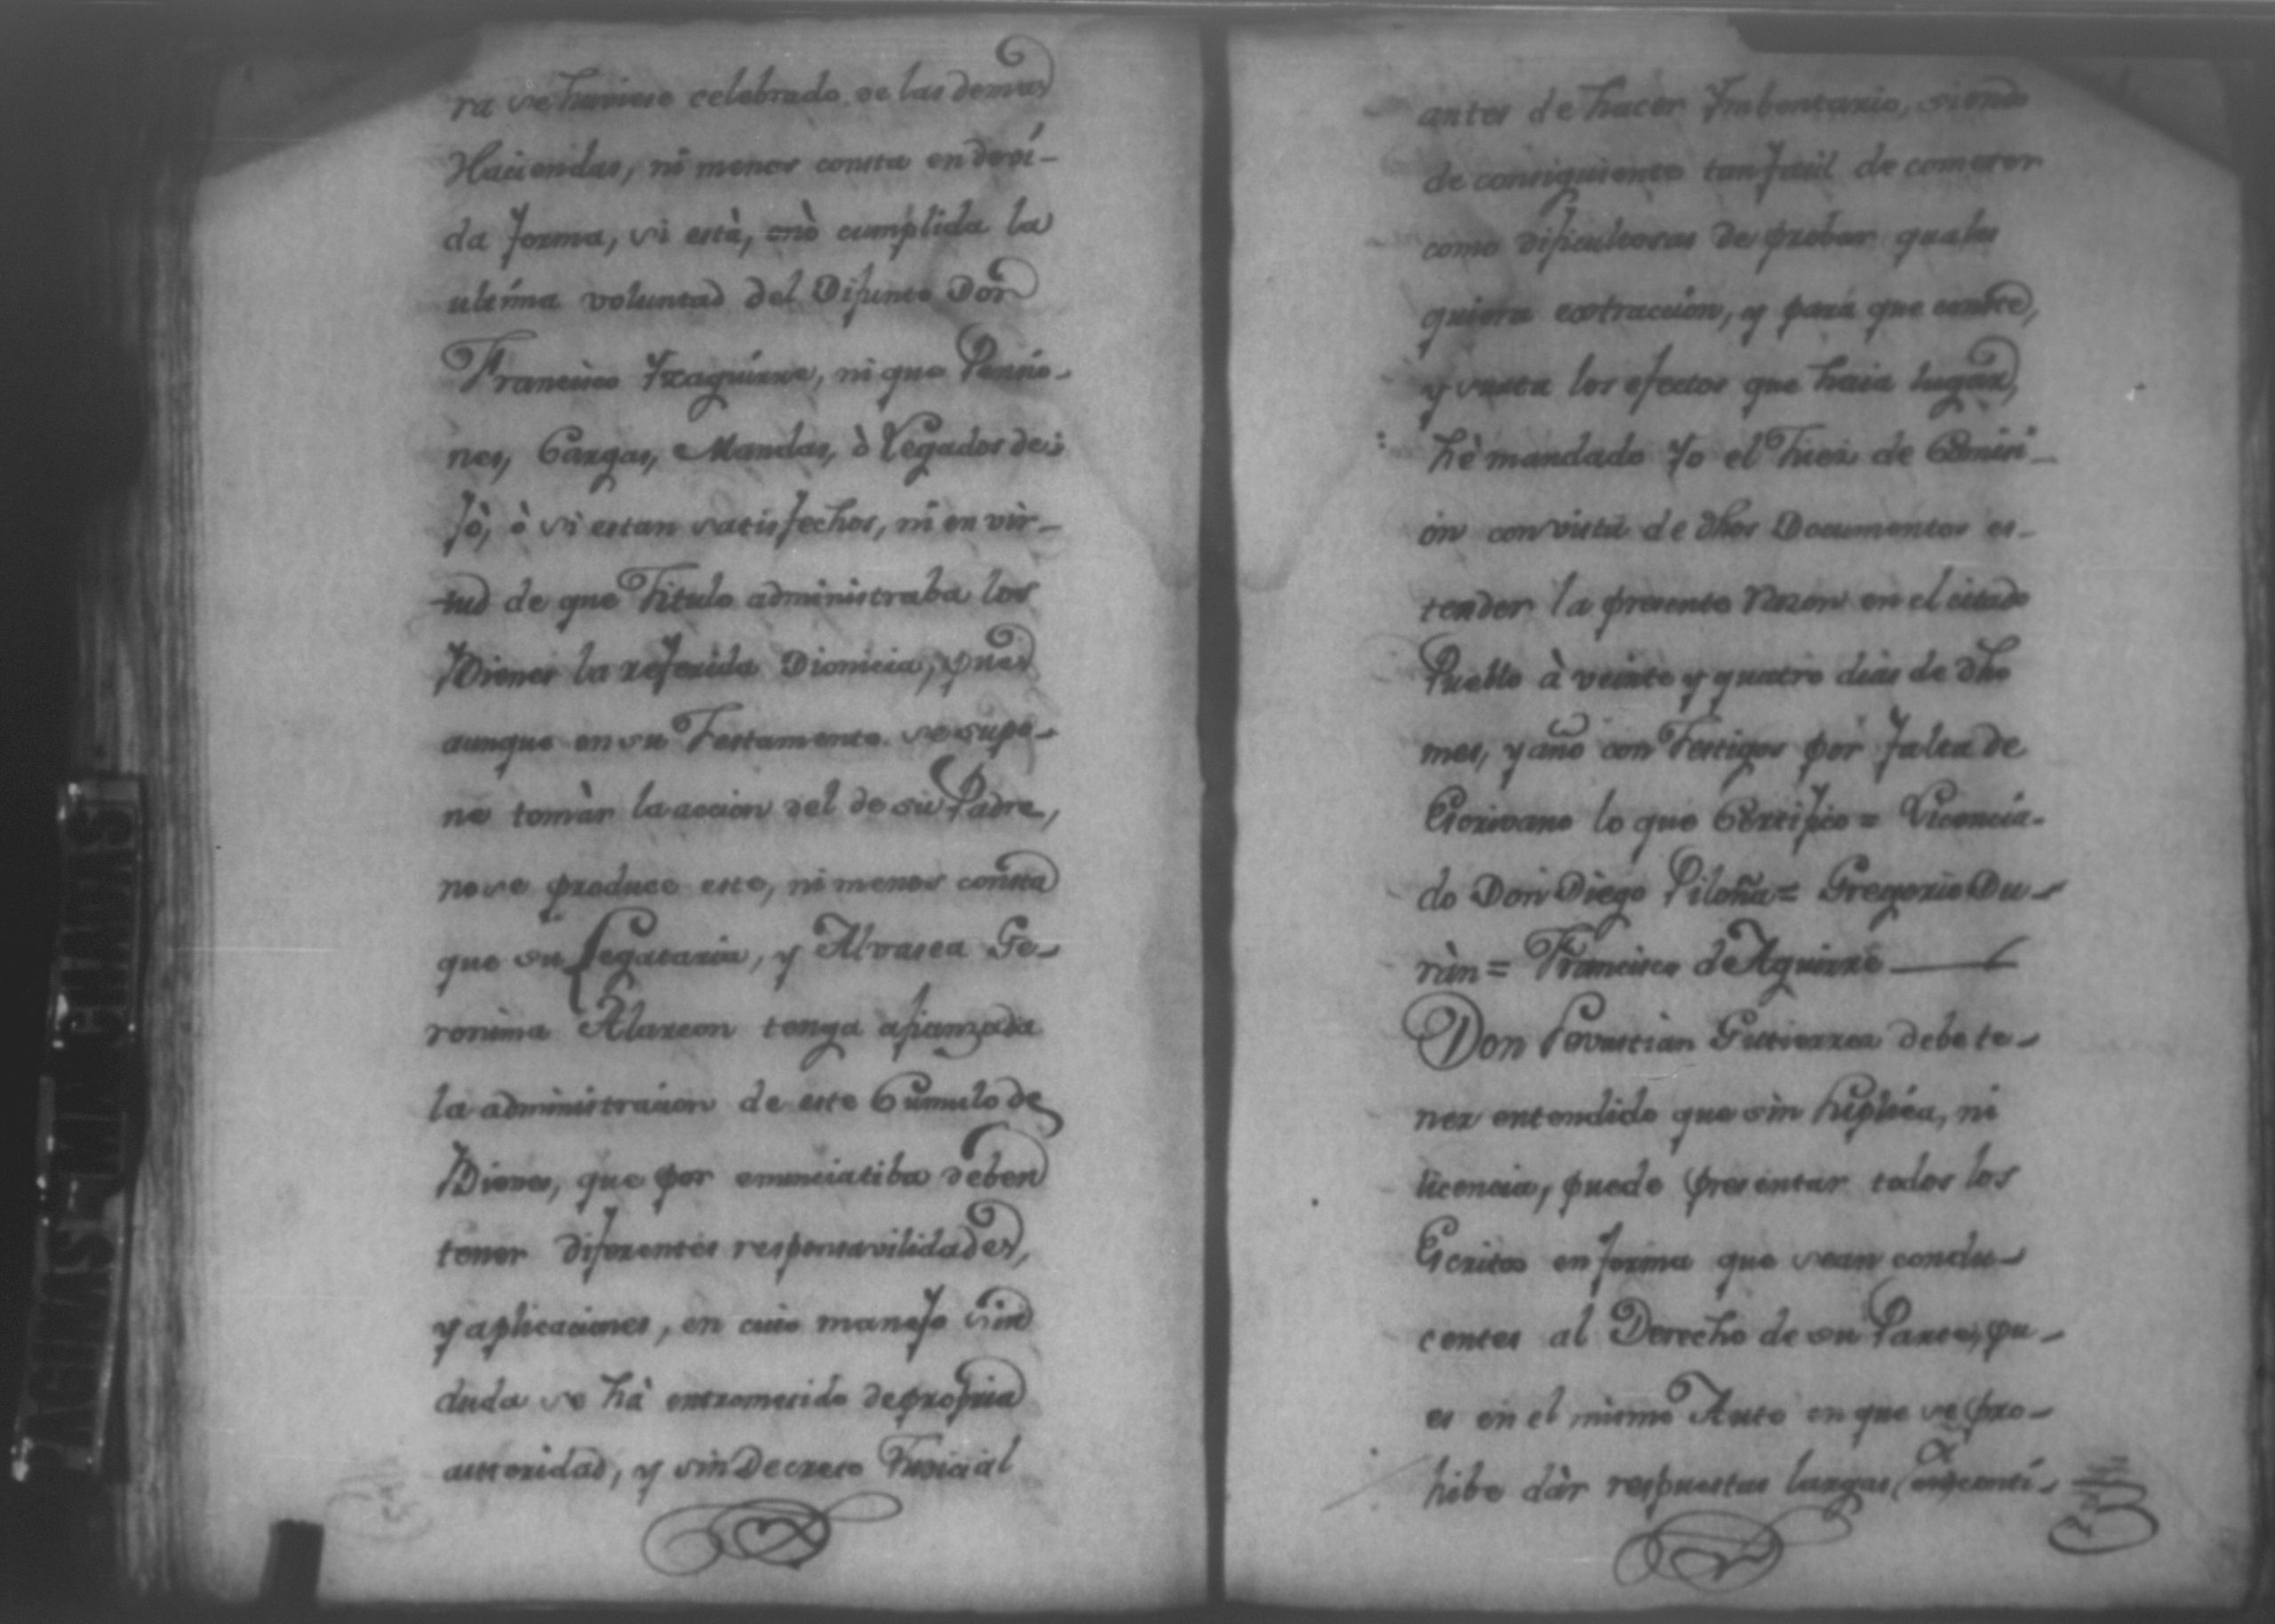 ra se huviese celebrado de las demas
Haciendas, ni menos consta en devi-
da forma, si està, onò cumplida la
ultima voluntad del Difunto Don
Francisco Yzaguirre, ni que Pencio-
nes, Cargas, Mandas, ò Legados de-
jò, ò si estan satisfechos, ni en vir-
tud de que Titulo administraba los
Bienes la referida Dionicia, pues
aunque en su Testamento se supo-
ne tomàr la accion del de su Padre,
no se produce este, ni menos consta
que su Legataria, y Alvasea Ge-
ronima Alarcon tenga afianzada
la administracion de este Cumulo de
Bienes, que por enunciatiba deben
tener diferentes responsavilidades,
y aplicaciones, en cuio manejo sin
duda se hà entromerido de propria
autoridad, y sin Decreto Judicial
antes de hacer Ynbentario, siendo
de consiguiente tan facil de cometer
como dificultosas de probar quales
quiera extraccion, y para que conste,
y surta los efectos que haia lugar,
hè mandado Yo el Juez de Comici-
on con vista de dhos Documentos es-
tender la presente Razon en el citado
Pueblo à veinte y quatro dias de dho
mes, y año con Testigos por falta de
Escrivano lo que Certifico = Licencia-
do Don Diego Piloña = Gregorio Du-
ràn = Francisco de Aguirre
Don Sevastian Gutierrez debe te-
ner entendido que sin Suplica, ni
licencia, puede presentar todos los
Escritos en forma que sean condu-
centes al Derecho de su Parte, pu-
es en el mismo Auto en que se pro-
hibe dàr respuestas largas